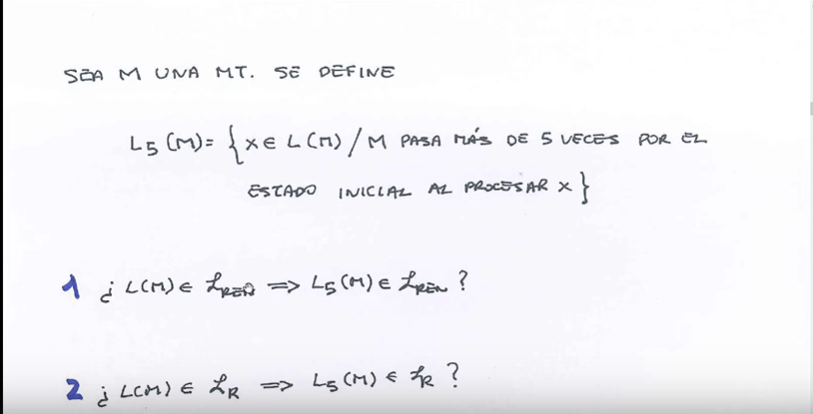 SEA M UNA MT. SE DEFINE
L5 (M)= { x ∈ L(M) / M PASA MÁS DE 5 VECES POR EL
ESTADO INICIAL AL PROCESAR x }
1 ¿ L(M) ∈ ℒREN ⇒ L5(M) ∈ ℒREN ?
2 ¿ L(M) ∈ ℒR ⇒ L5(M) ∈ ℒR ?